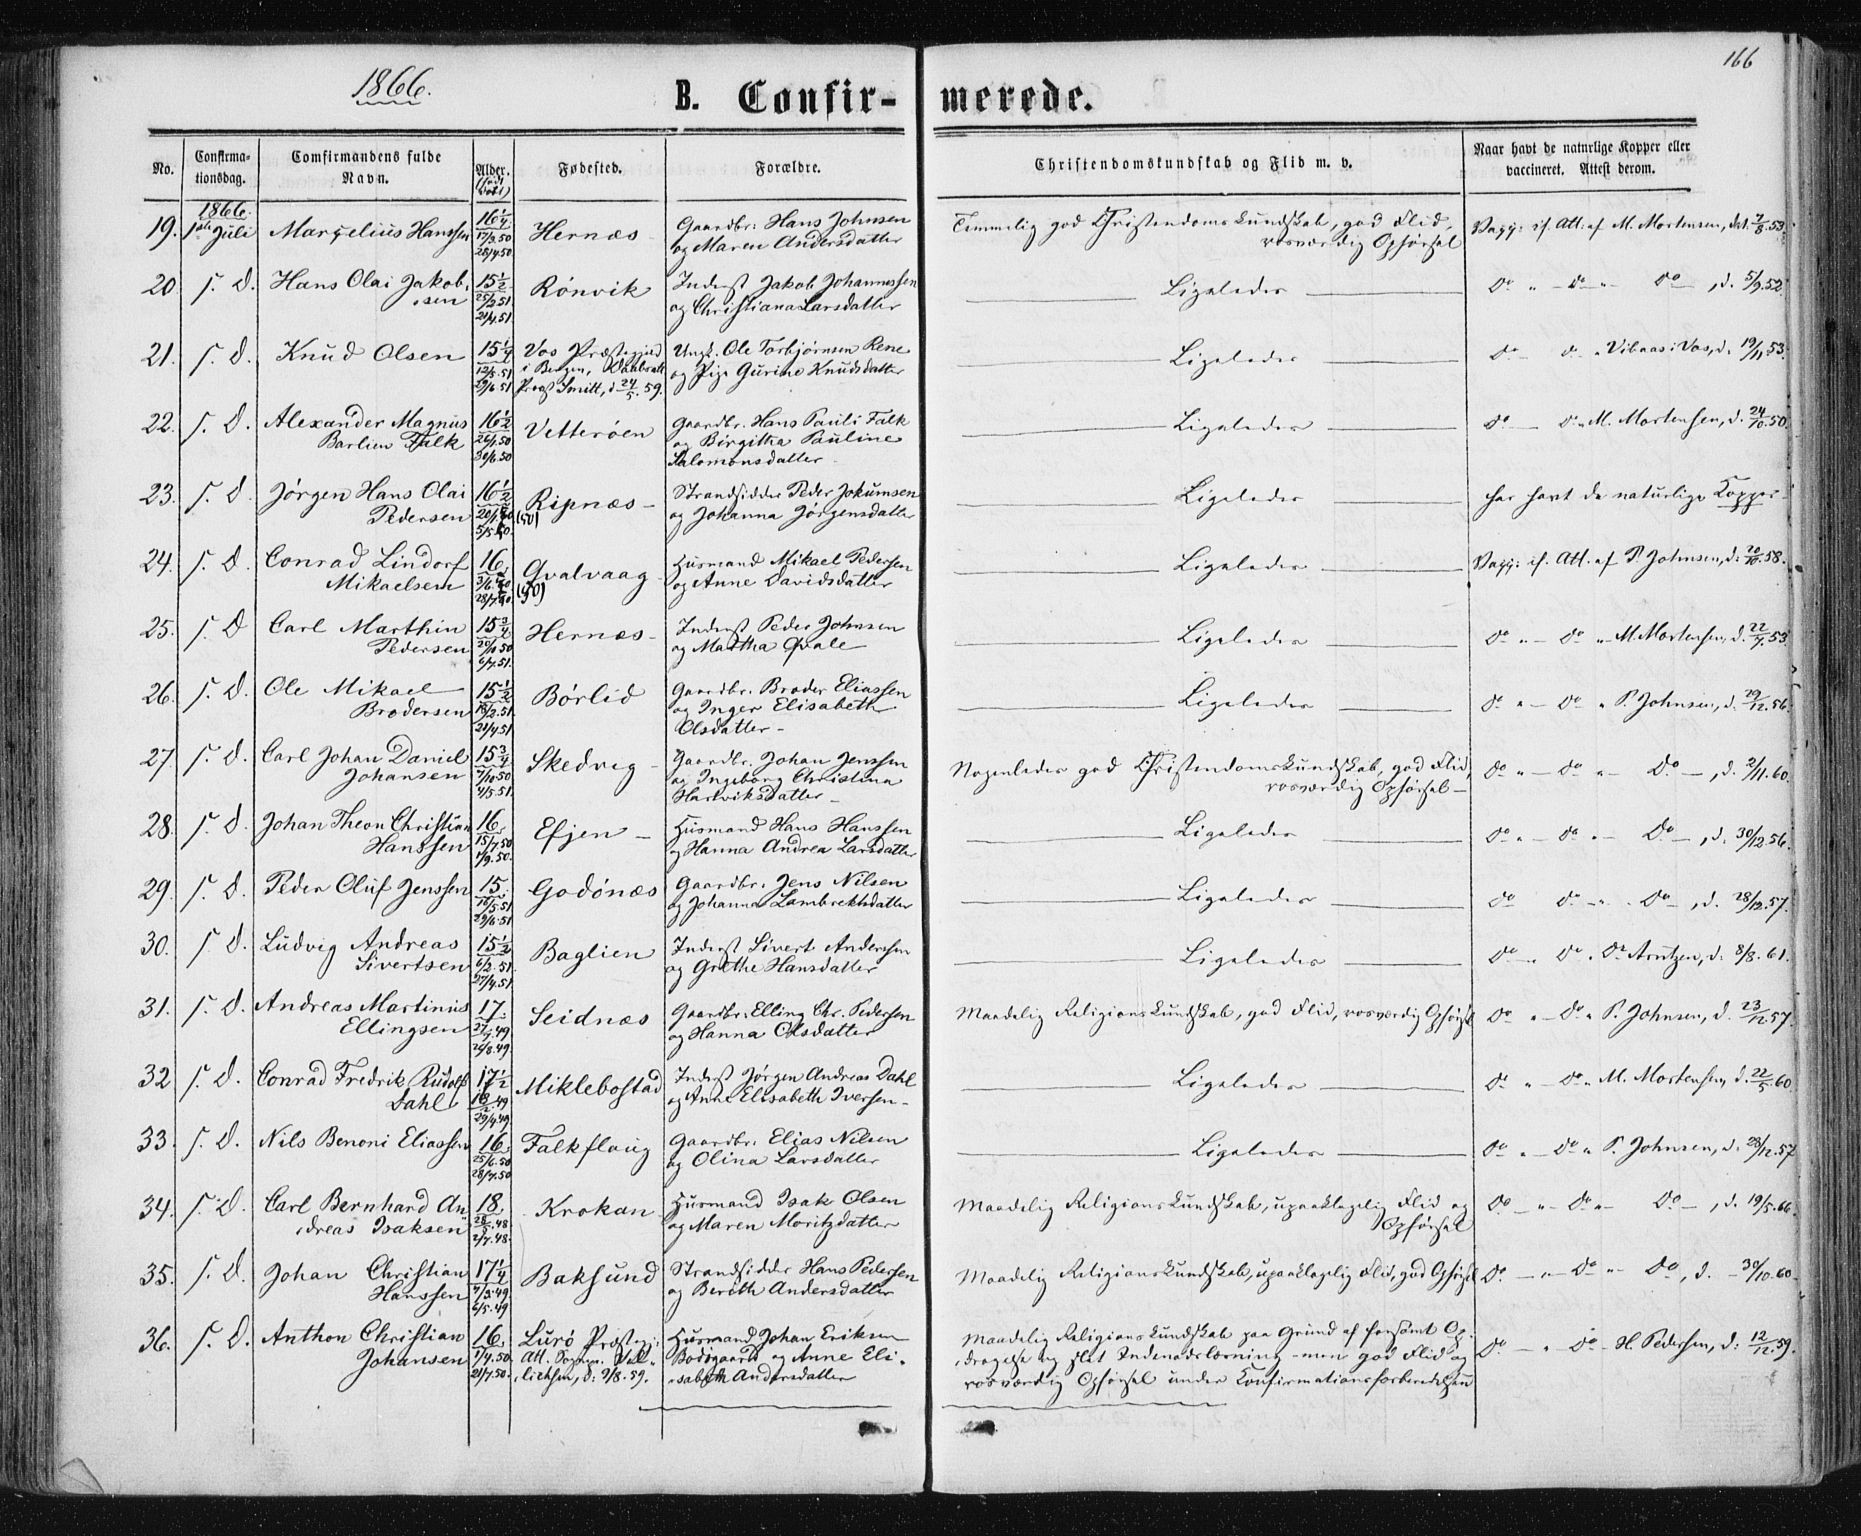 166
1866.
B. Confir- merede.
No.
Confirma-
tionsdag.
Comfirmandens fulde
Navn.
Alder.
Fødested.
Forældre.
Christendomskundskab og Flid m. v.
Naar havt de naturlige Kopper eller
vaccineret. Attest derom.
1866.
19. 1ste Juli Marcelius Hanssen 16 1/4 17/3.50 28/4.50 Hernæs Gaardbr: Hans Johnsen
og Maren Andersdatter
Temmelig god Christendomskundskab, god Flid,
rosværdig Opførsel
Vacc: if. Att: af M. Mortensen, dat: 7/8.53.
20 s. D. Hans Olai Jakob-
sen 15 1/2 25/2.51 21/4.51. Rønvik Inderst Jakob Johannessen
og Christiana Larsdatter
Ligeledes do " do " do, d. 5/9.52.
21. s. D. Knud Olsen 15 1/4 12/5.51 29/6.51 Vos Præstegjæld
i Bergen, Daabsatt.
Provst Smitt, d. 24/5.59. Ungk. Ole Torbjørnsen Rene
og Pige Gurine Knudsdatter
Ligeledes do do " Vibaas i Vos, d. 19/11.53.
22. s. D. Alexander Magnus
Barlien Falk 16 1/2 26/1.50 30/6.50 Vetterøen Gaardbr. Hans Pauli Falk
og Birgitha Pauline
Salomonsdatter
Ligeledes do do " M. Mortensen, d. 24/10.50.
23. s. D Jørgen Hans Olai
Pedersen 16 1/2 (50) Ripnæs Strandsidder Peder Jokumsen
og Johanna Jørgensdatter
Ligeledes har havt de naturlige Kopper
24. s. D Conrad Lindorf
Mikaelsen 16 (50) Qvalvaag Husmand Mikael Pedersen
og Anne Davidsdatter
Ligeledes Vacc: if. Att. af P. Johnsen, d: 20/10.58.
25. s. D Carl Marthin
Pedersen 15 3/4 20/11.50 6/7.51. Hernæs Inderst Peder Johnsen
og Martha Qvale
Ligeledes do " do " M. Mortensen, d. 22/7.53
26. s. D. Ole Mikael
Brodersen 15 1/2 18/2.51. 21/4.51 Børlid Gaardbr. Broder Eliassen
og Inger Elisabeth
Olsdatter
Ligeledes do " do " P. Johnsen, d. 29/12.56.
27. s. D. Carl Johan Daniel
Johansen 15 3/4 7/10.50 4/5.51. Skedvig Gaardbr. Johan Jenssen
og Ingeborg Christina
Hartviksdatter
Nogenledes god Christendomskundskab, god Flid,
rosværdig Opførsel
do " do " Do, d. 2/11.60.
28. s. D. Johan Theon Christian
Hanssen 16 15/7.50 1/9.50. Efjen Husmand Hans Hanssen
og Hanna Andrea Larsdatter
Ligeledes do " do " Do, d. 30/12.56.
29. s. D. Peder Oluf Jenssen 15. 16/5.51 29/6.51 Godønæs Gaardbr. Jens Nilsen
og Johanna Lambrektsdatter
Ligeledes do do " Do, d. 28/12.57.
30. s. D. Ludvig Andreas
Sivertsen 15 1/2 6/2.51. 27/4.51 Baglien Inderst Sivert Anderssen
og Grethe Hansdatter
Ligeledes do " do " Dr Arntzen, d: 8/8.61.
31. s. D. Andreas Martinus
Ellingsen 17 26/8.49. Seidnæs Gaardbr. Elling Chr. Pedersen
og Hanna Olsdatter
Maadelig Religionskundskab, god Flid, rosværdig Opførsel do " do " P. Johnsen, d. 23/12.57.
32 s. D. Conrad Fredrik Rudolf
Dahl 17 1/2 29/4.49 Miklebostad Inderst Jørgen Andreas Dahl
og Anne Elisabeth Iversen
Ligeledes do " do " M. Mortensen, d. 22/5.60
33. s. D. Nils Benoni Eliassen 16 25/6.50 28/7.50 Falkflaug Gaardbr. Elias Nilsen
og Olina Larsdatter
Ligeledes do " do " P. Johnsen, d. 28/12.57
34. s. D. Carl Bernhard An
dreas Isaksen 18 28/5.48 2/7.48. Krokan Husmand Isak Olsen
og Maren Moritzdatter
Maadelig Religionskundskab, upaaklagelig Flid og
Opførsel
do " do " Do, d. 19/5.66.
35. s. D. Johan Christian
Hanssen 17 1/4 6/5.49 Baksund Strandsidder Hans Pedersen
og Bereth Andersdatter
Maadelig Religionskundskab, upaaklagelig Flid, god Opførsel do " do " Do, d. 30/10.60
36. s. D. Anthon Christian
Johansen 16 1/4.50 21/7.50. Lurø Præstegj:
Att. Sognepr.
d: 9/8.59. Husmand Johan Eriksen
Bodøgaard og Anne Eli-
sabeth Andersdatter
Maadelig Religionskundskab paa Grund af forsømt Op-
dragelse og slet Indenadslæsning - men god Flid og
rosværdig Opførsel under Konfirmationsforberedelsen
do " do H. Pedersen, d: 12/12.59.